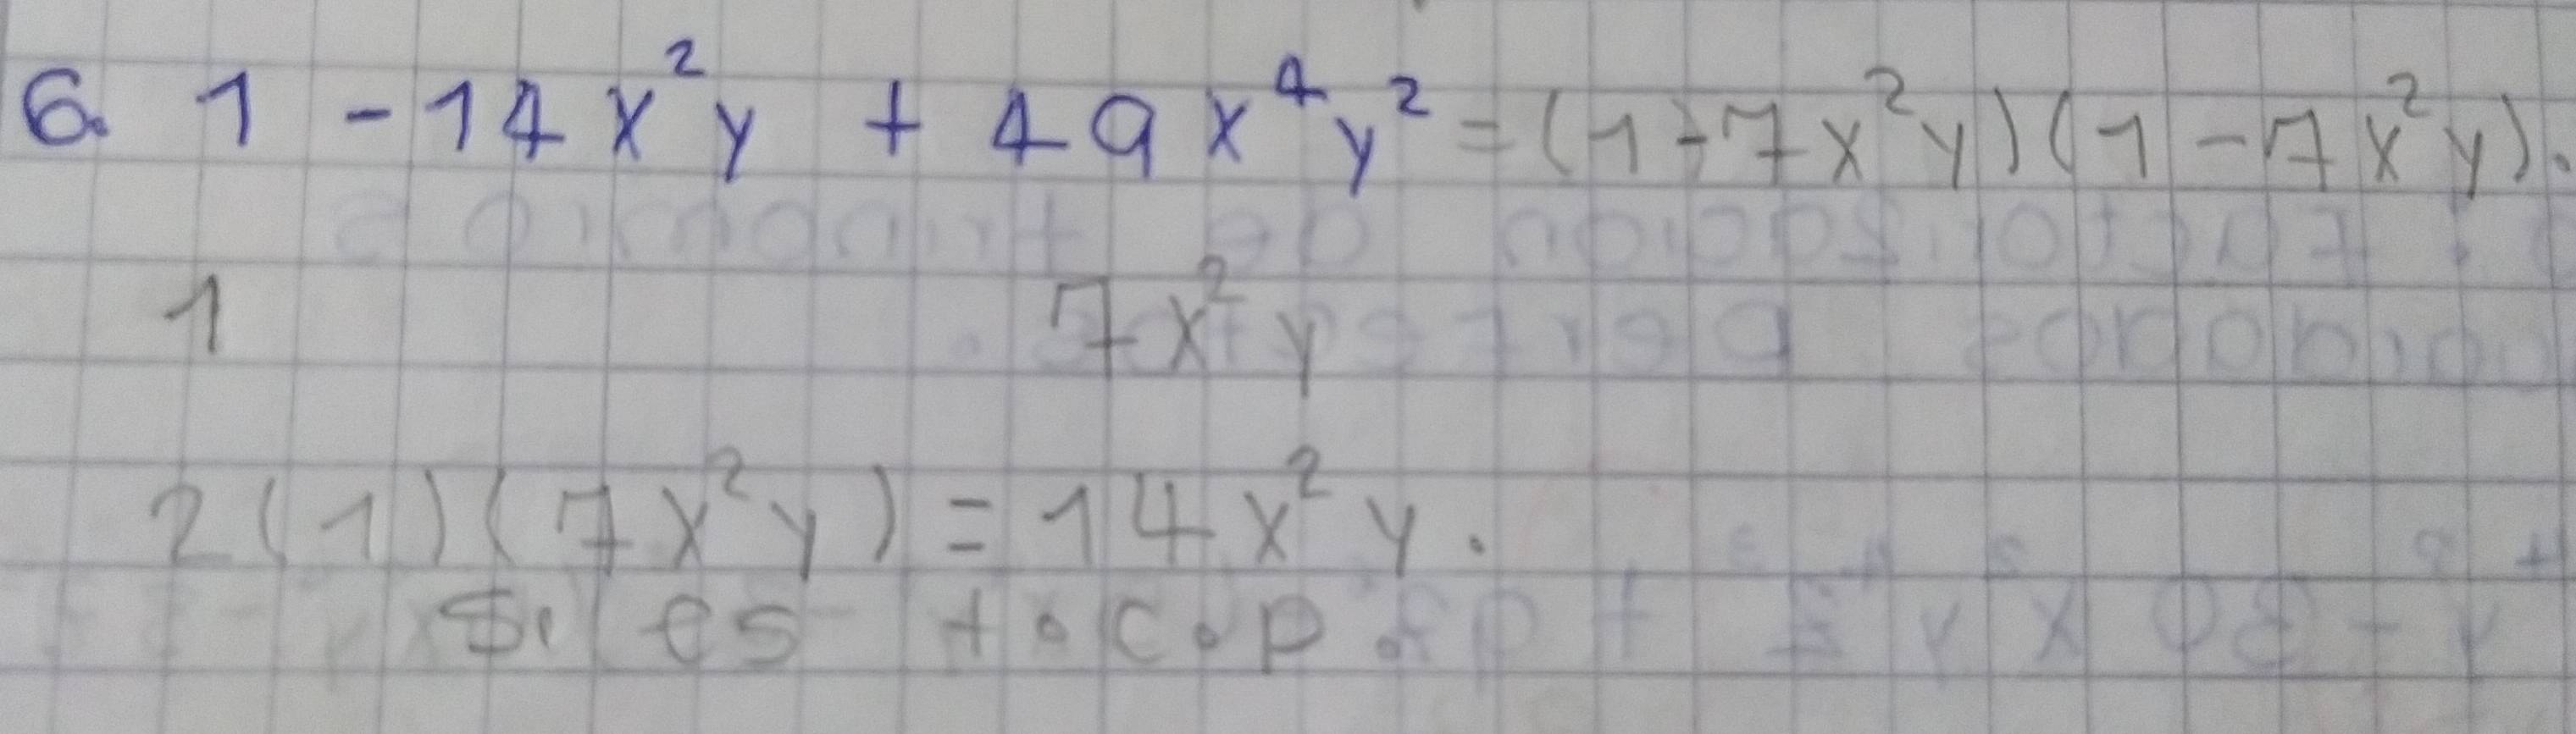 6. 1 - 14x²y + 49x⁴y² = (1 - 7x²y)(1 - 7x²y).
1 7x²y
2(1)(7x²y) = 14x²y.
Si es t.c.p.